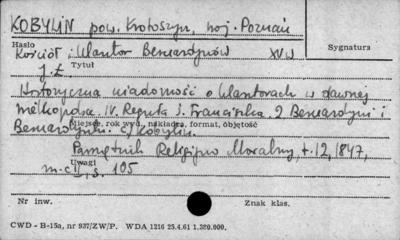 KOBYLIN pow. Krotoszyn, woj. Poznań
Hasło
Sygnatura
Kościół i klasztor Bernardynów XV w
Tytuł
J. Ł
Historyczna wiadomość o klasztorach w dawnej
wielkopolsce. IV. Reguła S. Franciszka. 2 Bernardyni i
Bernardynki. c) Kobylin.
Miejsce, rok wyd., nakładca, format, objętość
Pamiętnik Religijno Moralny, t. 12, 1847,
Uwagi
s. 105
Nr inw.
Znak klas.
CWD - B-15a, nr 937/ZW/P. WDA 1216 25.4.61 1.380.000.